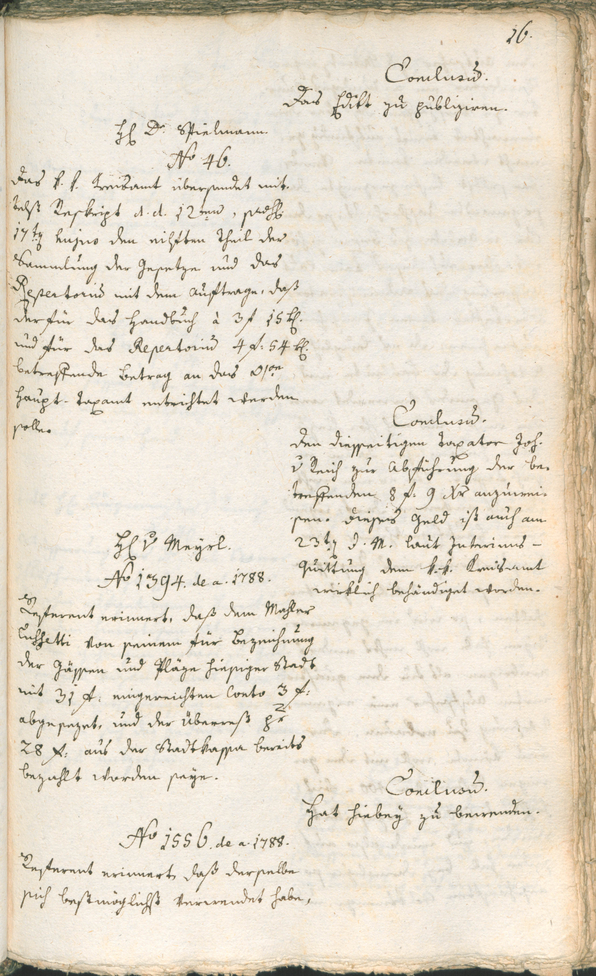 16.
Conclusum.
Das Edikt zu publiziren.
H. D. Spielmann
No 46.
Das k. k. Kreisamt übersendet mit-
telst Reskript d. d. 12ten, 
17ten hujus den eilften Theil der
Sammlung der Gesetze und das
Repertorium mit dem Auftrage, daß
der für das Handbuch à 3 f 15 k.
und für das Repertorium 4 f. 54 k.
betreffende Betrag an das 
Haupt-Taxamt entrichtet werden
solle.
Conclusum.
Den diesseitigen Taxator Joh.
v Reich zur Abführung der be-
treffenden 8 f. 9 Xr anzuwei-
sen. Dieses Geld ist auch am
23ten d. M. laut Interims-
Quittung dem k. k. Kreisamt
wirklich behändiget worden.
H. v Meyrl.
No 1394. de a. 1788.
Referent erinnert, daß dem Mahler
von seinem für Bezeichnung
der Gässen und Pläze hiesiger Stadt
mit 31 f. eingereichten Conto 3 f.
abgesezet, und der Überrest pr
28 f. aus der Stadtkassa bereits
bezahlt worden seye.
Conclusum.
Hat hiebey zu bewenden.
No 1556. de a. 1788.
Referent erinnert, daß derselbe
sich beßmöglichst verwendet habe,